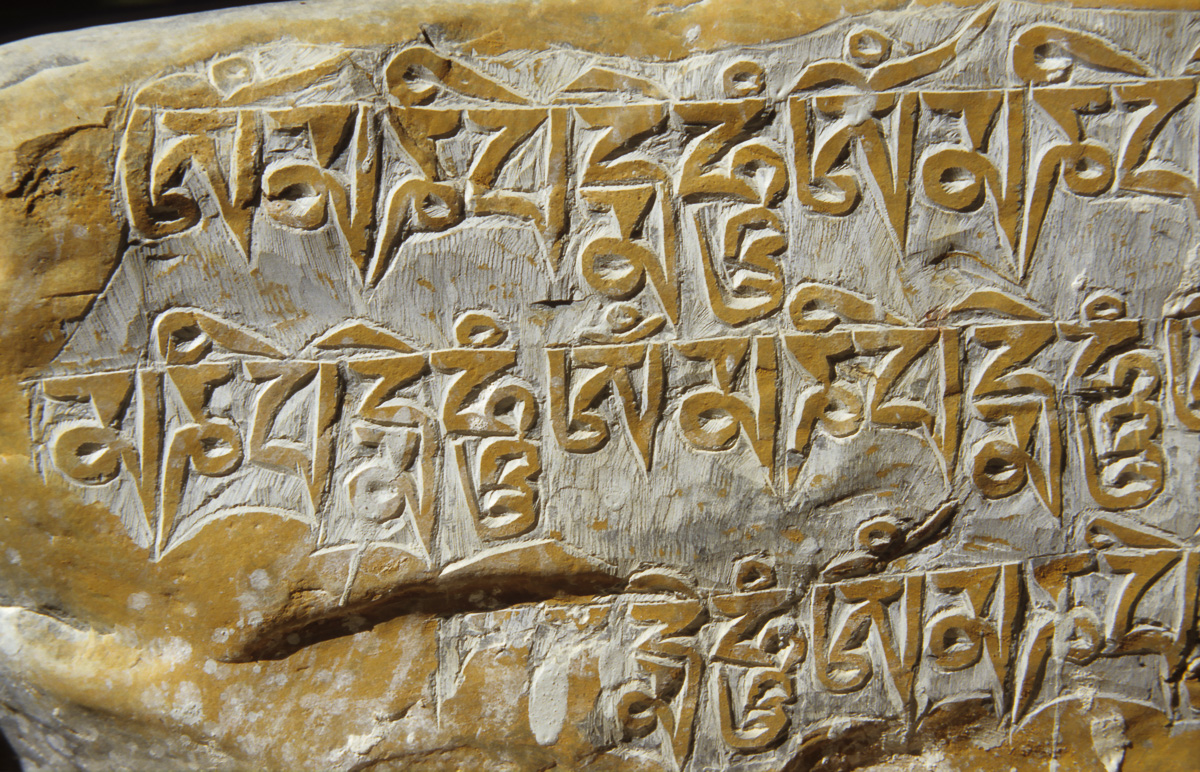 ཨོཾམཎིཔདྨེཧཱུཾཨོཾམཎིཔ
མཎིཔདྨེཧཱུཾཨོཾམཎིཔདྨེཧཱུཾ
དྨེཧཱུཾཨོཾམཎིཔ